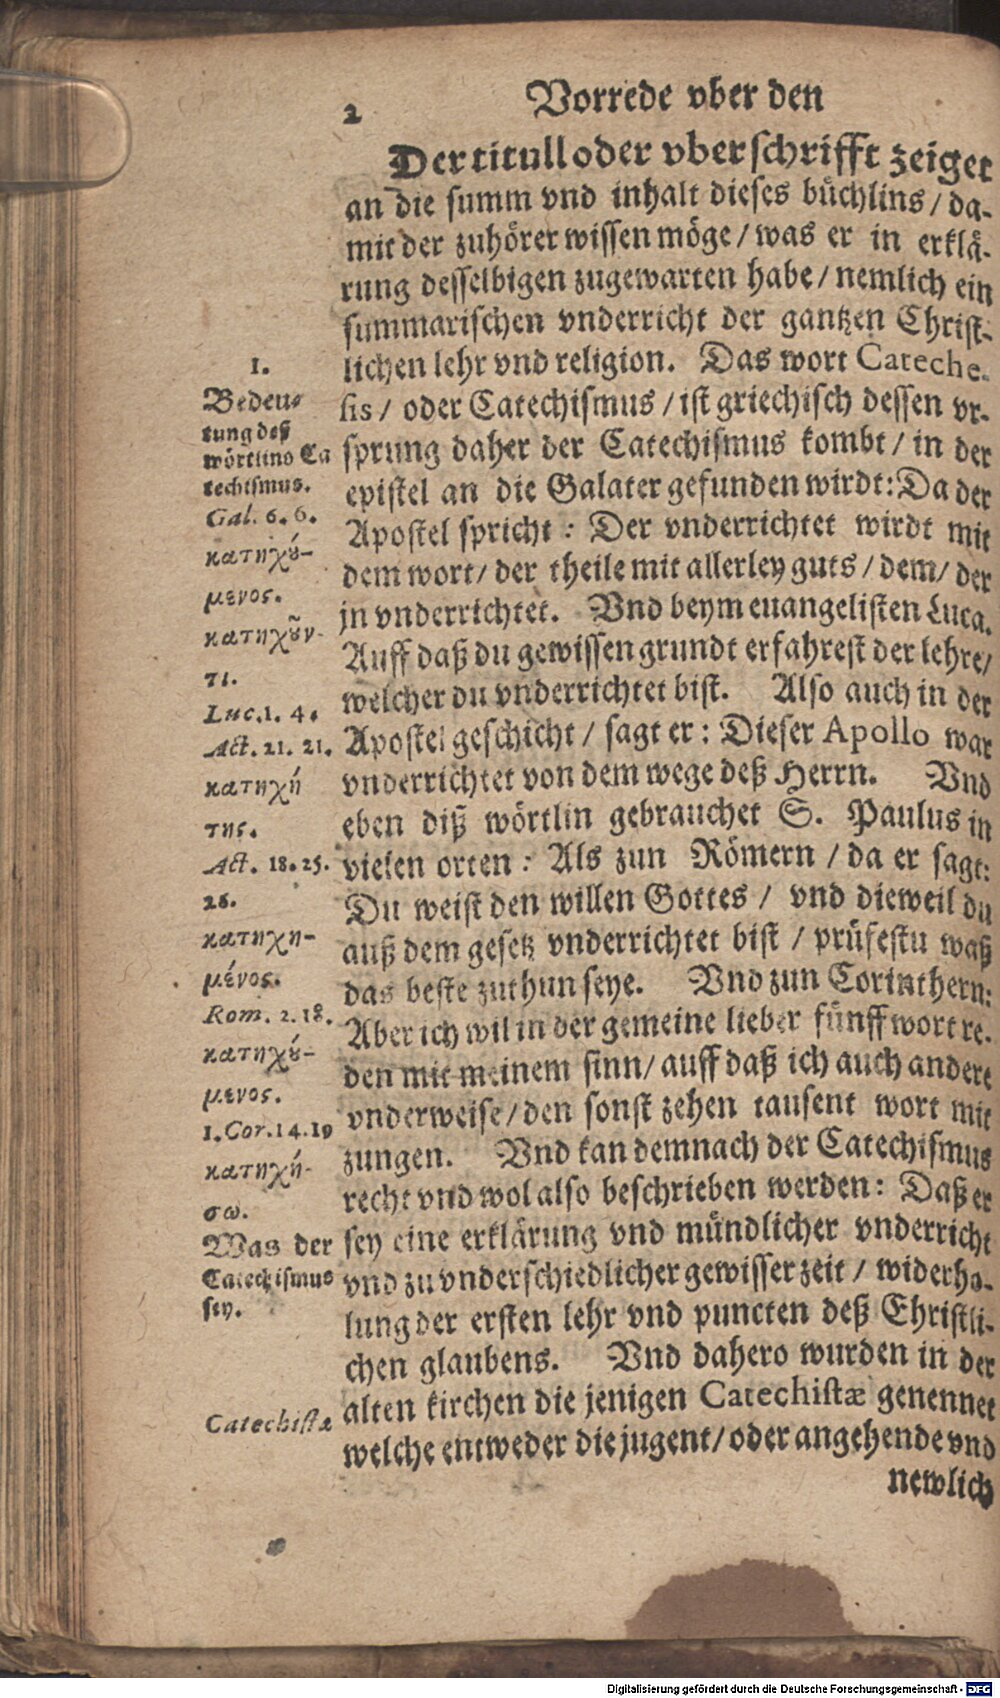 2
Vorrede vber den
Der titull oder vberschrifft zeiget
an die summ vnd inhalt dieses büchlins/ da-
mit der zuhörer wissen möge/ was er in erklä-
rung desselbigen zugewarten habe/ nemlich ein
summarischen vnderricht der gantzen Christ-
lichen lehr vnd religion. Das wort Cateche-
sis/ oder Catechismus/ ist griechisch dessen vr-
sprung daher der Catechismus kombt/ in der
epistel an die Galater gefunden wirdt: Da der
Apostel spricht: Der vnderrichtet wirdt mit
dem wort/ der theile mit allerley guts/ dem/ der
jn vnderrichtet. Vnd beym euangelisten Luca.
Auff daß du gewissen grundt erfahrest der lehre/
welcher du vnderrichtet bist. Also auch in der
Apostel geschicht/ sagt er: Dieser Apollo war
vnderrichtet von dem wege deß Herrn. Vnd
eben diß wörtlin gebrauchet S. Paulus in
vielen orten: Als zun Römern/ da er sagt:
Du weist den willen Gottes/ vnd dieweil du
auß dem gesetz vnderrichtet bist/ prüfestu waß
das beste zuthun seye. Vnd zun Corinthern:
Aber ich wil in der gemeine lieber fünff wort re-
den mit meinem sinn/ auff daß ich auch andere
vnderweise/ den sonst zehen tausent wort mit
zungen. Vnd kan demnach der Catechismus
recht vnd wol also beschrieben werden: Daß er
sey eine erklärung vnd mündlicher vnderricht
vnd zu vnderschiedlicher gewisser zeit/ widerho-
lung der ersten lehr vnd puncten deß Christli-
chen glaubens. Vnd dahero wurden in der
alten kirchen die jenigen Catechistæ genennet
welche entweder die jugent/ oder angehende vnd
newlich
1.
Bedeu-
tung deß
wörtlins Ca
techismus.
Gal. 6. 6.
κατηχού-
μενος.
κατηχοῦν-
τι.
Luc. 1. 4.
Act. 21. 21.
κατηχή
της.
Act. 18. 25.
26.
κατηχη-
μένος.
Rom. 2. 18.
κατηχού-
μενος.
1. Cor. 14. 19
κατηχή-
σω.
Was der
Catechismus
sey.
Catechistæ
Digitalisierung gefördert durch die Deutsche Forschungsgemeinschaft - DFG